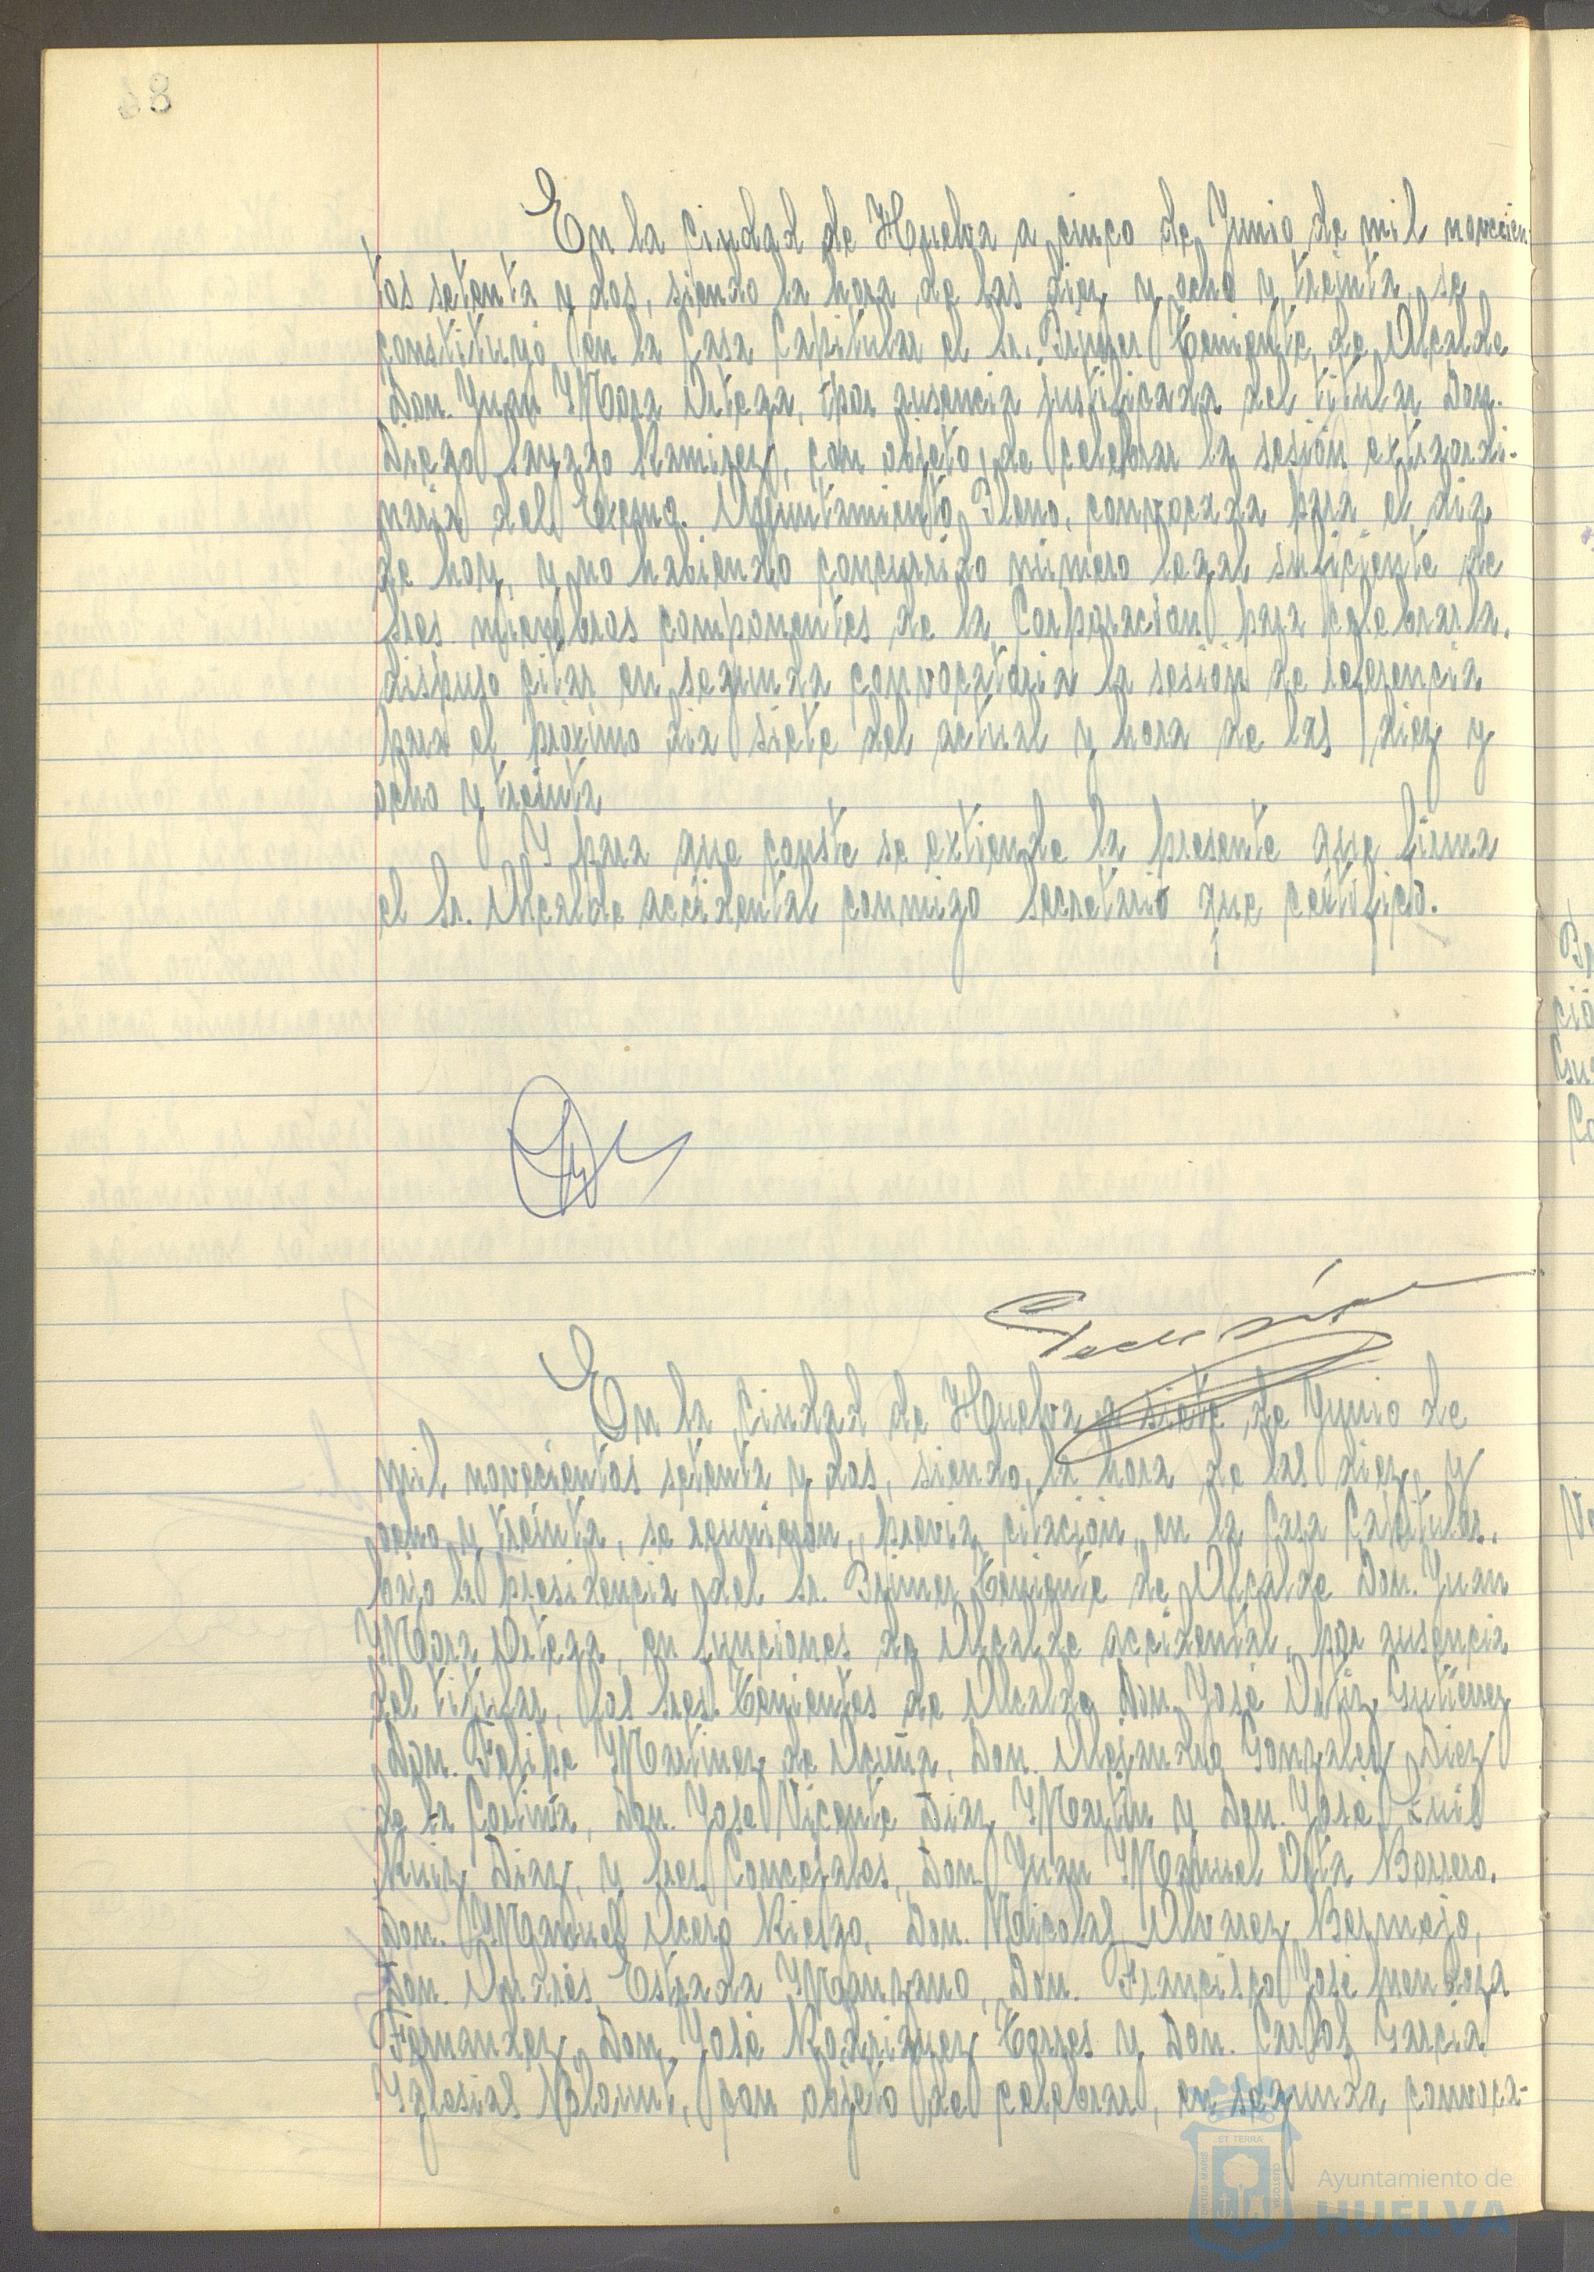 En la Ciudad de Huelva a cinco de Junio de mil novecien-
tos setenta y dos, siendo la hora de las diez y ocho y treinta, se
constituyó en la Casa Capitular el Sr. Primer Teniente de Alcalde
Don. Juan Mora Ortega, por ausencia justificada del titular Don.
Diego Sayago Ramirez, con objeto de celebrar la sesión extraordi-
naria del Excmo. Ayuntamiento Pleno, convocada para el dia
de hoy, y no habiendo concurrido número legal suficiente de
Sres. miembros componentes de la Corporación para celebrarla,
dispuso citar en segunda convocatoria la sesión de referencia
para el próximo dia siete del actual y hora de las diez y
ocho y treinta
Y para que conste se extiende la presente que firma
el Sr. Alcalde accidental conmigo Secretario que certifico.
En la Ciudad de Huelva a siete de Junio de
mil novecientos setenta y dos, siendo la hora de las diez y
ocho y treinta, se reunieron, previa citación, en la Casa Capitular,
bajo la presidencia del Sr. Primer Teniente de Alcalde Don. Juan
Mora Ortega, en funciones de Alcalde accidental, por ausencia
del titular, los Sres. Tenientes de Alcalde Don. José Ortiz Gutiérrez
Don. Felipe Martinez de Acuña, Don. Alejandro Gonzalez Diez
de la Cortina, Don. Jose Vicente Diaz Martin y Don. José Luis
Ruiz Diaz, y Sres. Concejales, Don Juan Manuel Orta Borrero,
Don. Manuel Acero Riesgo, Don. Nicolas Alvarez Bermejo,
Don. Andrés Estrada Manzano, Don. Francisco José Mendoza
Fernandez, Don. José Rodriguez Torres y Don. Carlos Garcia
Iglesias Blount, con objeto de celebrar, en segunda convoca-
Ayuntamiento de
HUELVA